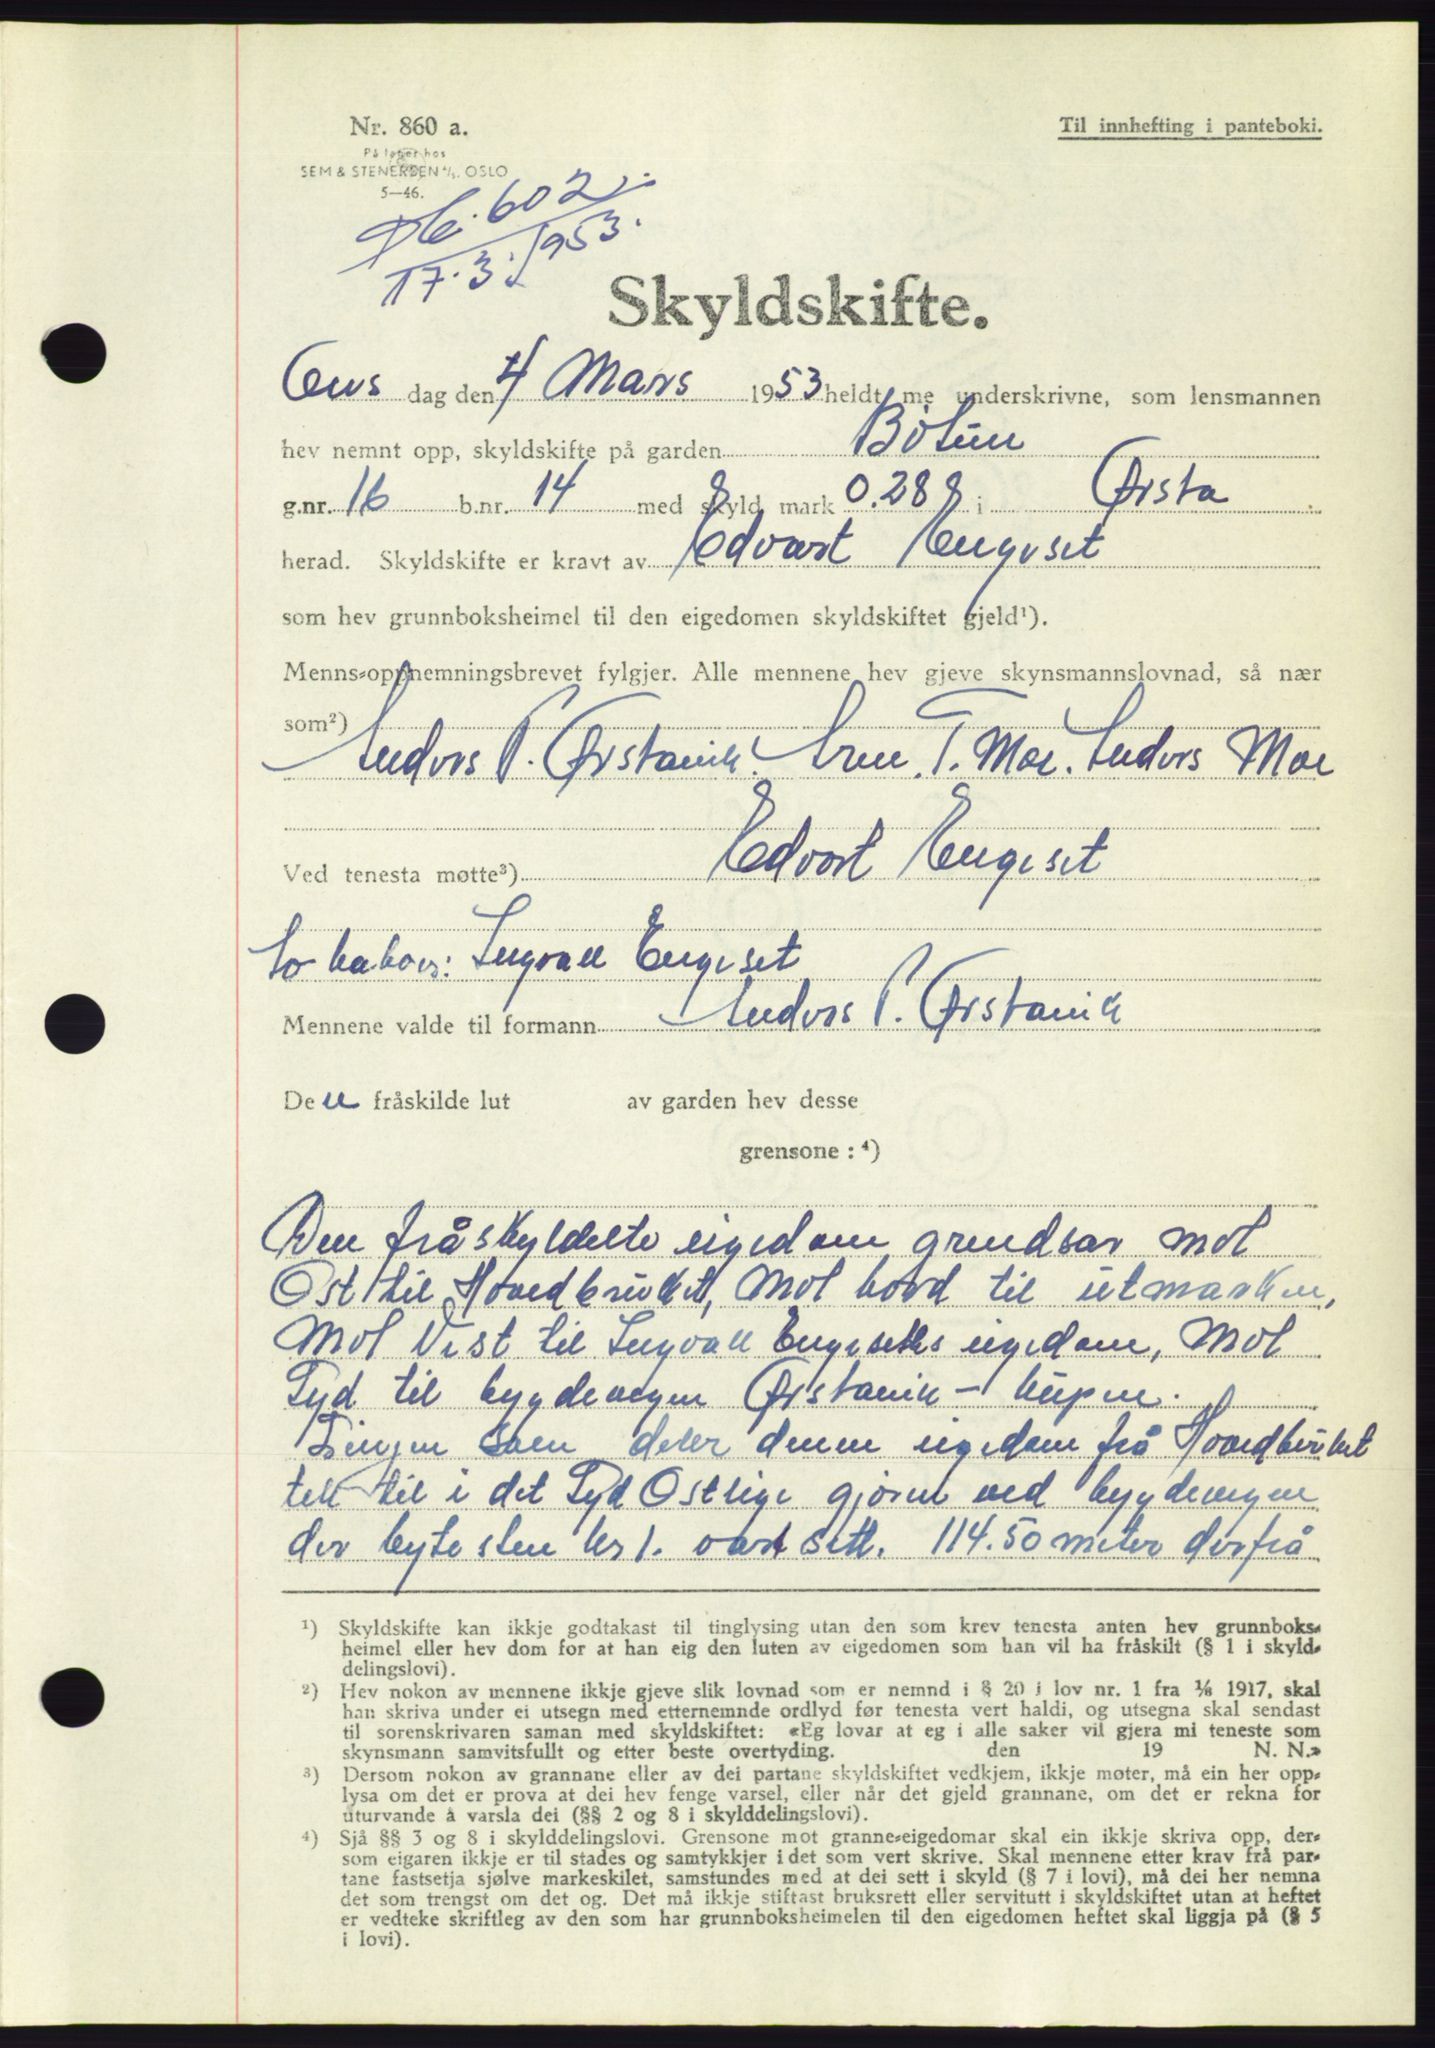 Nr. 860 a.
Til innhefting i panteboki.
På lager hos
SEM & STENERSEN A/S. OSLO
5—46.
Db. 602
17.3.1953.
Skyldskifte.
Ons dag den 4 Mars 1953 heldt me underskrivne, som lensmannen
hev nemnt opp, skyldskifte på garden Botun
g.nr. 16 b.nr. 14 med skyld mark 0.28 i Ørsta
herad. Skyldskifte er kravt av Edvart Engeset
som hev grunnboksheimel til den eigedomen skyldskiftet gjeld¹).
Menns-oppnemningsbrevet fylgjer. Alle mennene hev gjeve skynsmannslovnad, så nær
som²)
Anders P. Ørstavik. T. Moe. Anders Moe
Ved tenesta møtte³) Edvart Engeset
Ingvall Engeset
Mennene valde til formann Anders P. Ørstavik
Den fråskilde lut av garden hev desse
grensone : ⁴)
Den fråskyldelte eigedom grendsar mot
Ost til Hovedbruket, mot nord til utmarken,
mot Vest til Ingvall Engesets eigedom, mot
Syd til bygdevegen Ørstavik –
Linjen som deler denne eigedom frå Hovedbruket
tek til i det Syd Ostlige gjorne ved bygdevegen
der bytesten nr 1. vart sett. 114.50 meter derfrå
¹) Skyldskifte kan ikkje godtakast til tinglysing utan den som krev tenesta anten hev grunnboks-
heimel eller hev dom for at han eig den luten av eigedomen som han vil ha fråskilt (§ 1 i skyld-
delingslovi).
²) Hev nokon av mennene ikkje gjeve slik lovnad som er nemnd i § 20 i lov nr. 1 fra ¹/₈ 1917, skal
han skriva under ei utsegn med etternemnde ordlyd før tenesta vert haldi, og utsegna skal sendast
til sorenskrivaren saman med skyldskiftet: «Eg lovar at eg i alle saker vil gjera mi teneste som
skynsmann samvitsfullt og etter beste overtyding. den 19 N. N.»
³) Dersom nokon av grannane eller av dei partane skyldskiftet vedkjem, ikkje møter, må ein her opp-
lysa om det er prova at dei hev fenge varsel, eller når det gjeld grannane, om det er rekna for
uturvande å varsla dei (§§ 2 og 8 i skylddelingslovi).
⁴) Sjå §§ 3 og 8 i skylddelingslovi. Grensone mot granne-eigedomar skal ein ikkje skriva opp, der-
som eigaren ikkje er til stades og samtykkjer i det som vert skrive. Skal mennene etter krav frå par-
tane fastsetja sjølve markeskilet, samstundes med at dei sett i skyld (§ 7 i lovi), må dei her nemna
det som trengst om det og. Det må ikkje stiftast bruksrett eller servitutt i skyldskiftet utan at heftet
er vedteke skriftleg av den som har grunnboksheimelen til den eigedomen heftet skal liggja på (§ 5
i lovi).